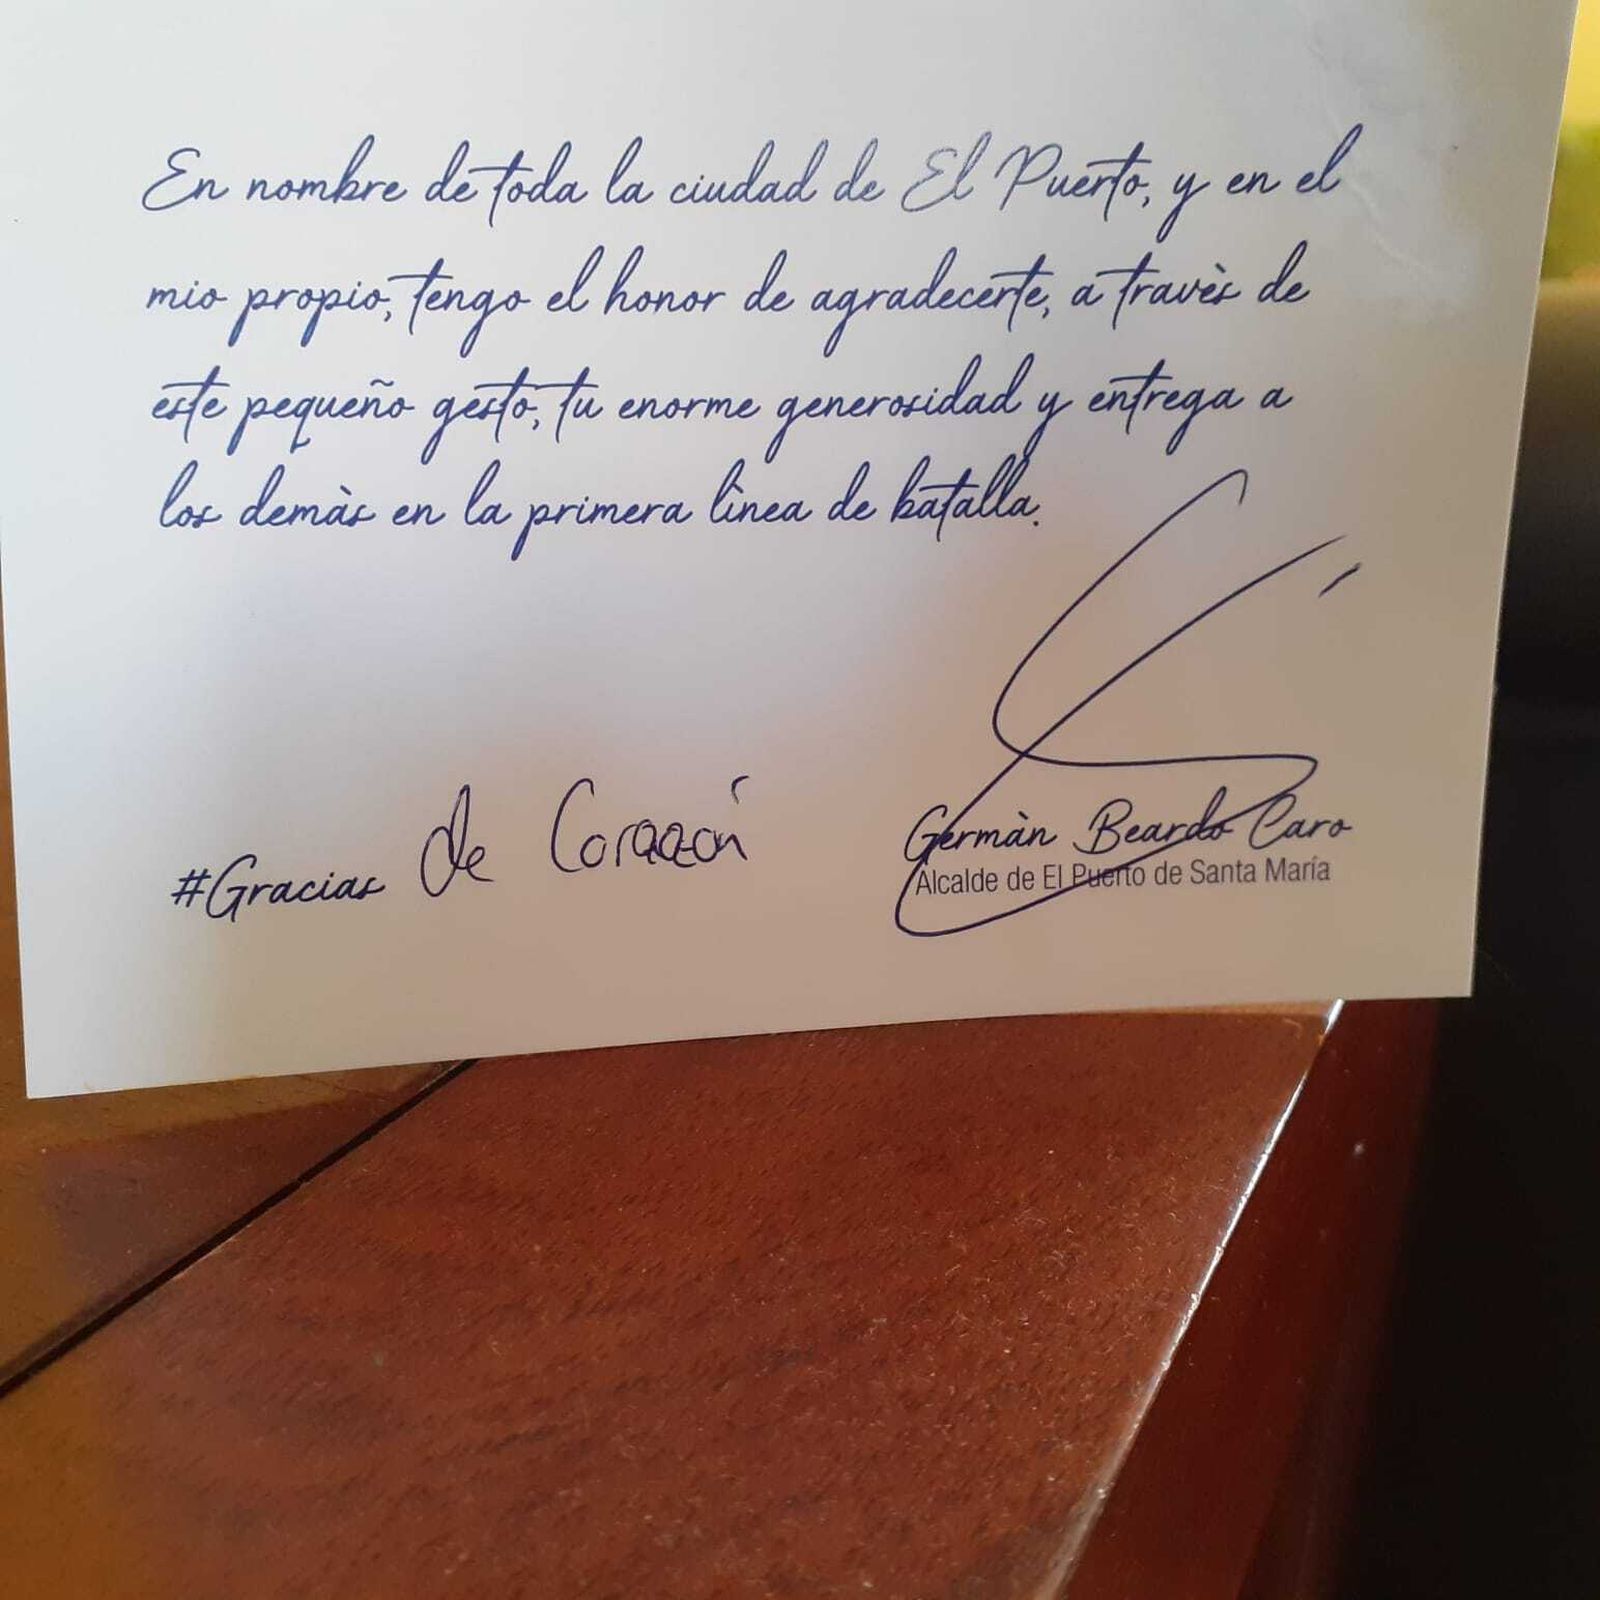 En nombre de toda la ciudad de El Puerto, y en el
mio propio, tengo el honor de agradecerte, a travès de
este pequeño gesto, tu enorme generosidad y entrega a
los demàs en la primera lìnea de batalla.
#Gracias de Corazón
Germàn Beardo Caro
Alcalde de El Puerto de Santa María